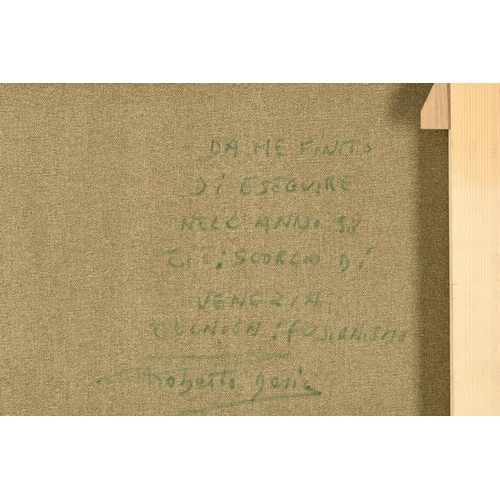 DA ME FINITO
DI ESEGUIRE
NELL'ANNO 98
TIT; SCORCIO DI
VENEZIA
TECNICA: FUSIONISMO
Roberto